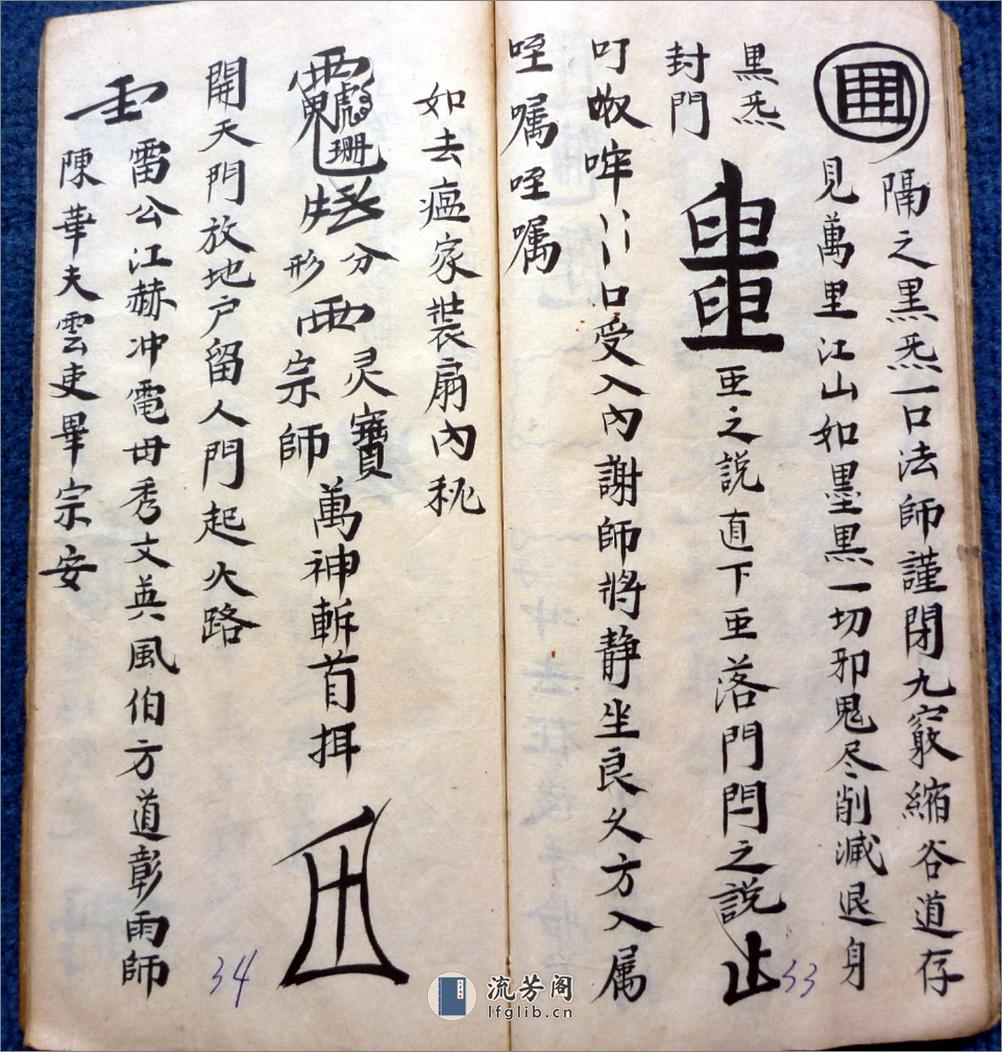 隔之黒炁一口法師謹閉九竅縮谷道存
見萬里江山如墨黒一切邪鬼尽削減退身
黒炁
封門
亜之説直下亜落門門之説
口受入內謝師將静坐良久方入属
咥嘱咥嘱
如去瘟家裝扇內秘
分形
灵寶
宗師
萬神斬首
開天門放地户留人門起火路
雷公江赫冲電毋秀文英風伯方道彰雨師
陳華夫雲吏畢宗安
33
34
流芳阁
lfglib.cn